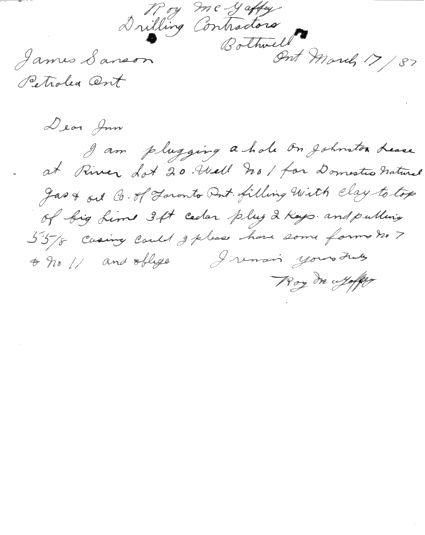 Roy McGaffy
Drilling Contractors
Bothwell
Ont March 17/37
James Sanson
Petrolea Ont
Dear Jim
I am plugging a hole on Johnston Lease
at River Lot 20. Well No 1 for Domestic Natural
Gas & oil Co. of Toronto Ont. filling With clay to top
of big lime 3 ft cedar plug 2 Kegs and pulling
5 5/8 casing could I please have some forms No 7
& No 11 and oblige I remain yours truly
Roy McGaffy